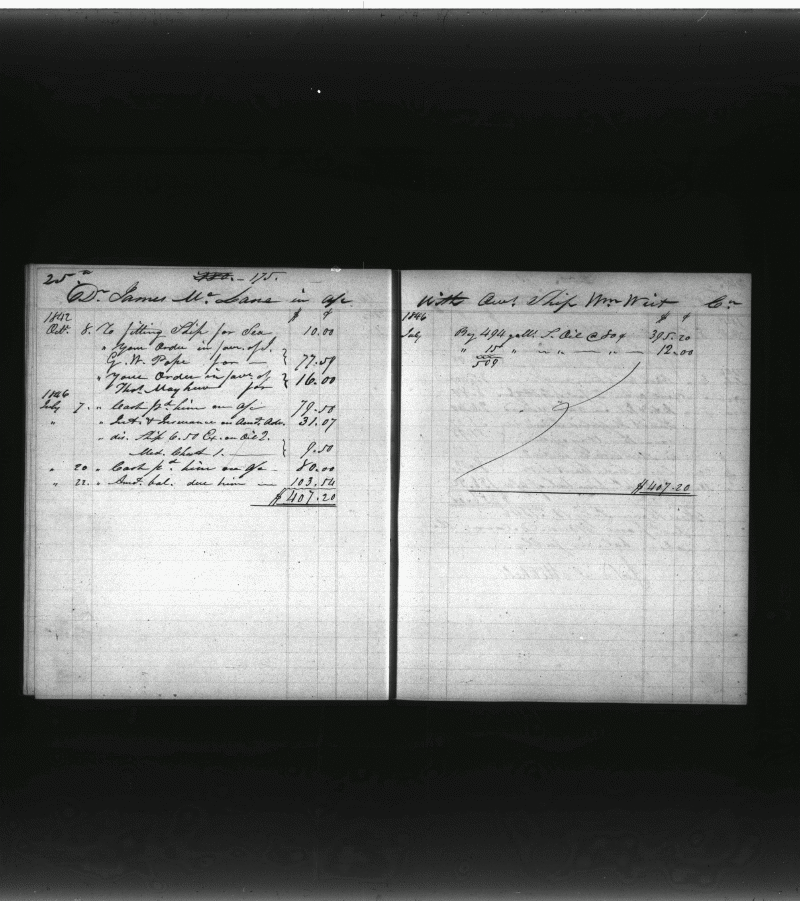 25 175.
Dr. James McLane in a/c
$ ¢
1842
Oct. 8. To fitting Ship for Sea 10.00
" Your Order in favr. of
G. W. Pope for } 77.59
" Your Order in favr. of
Thos. Mayhew for } 16.00
1846
July 7. " Cash pd. him on a/c 79.50
" " Int. & Insurance on Amt. Adv. 31.07
" dis. Ship 6.50 Ex. on Oil 2.
Med. Chest 1. } 9.50
" 20 " Cash pd. him on a/c 80.00
" 22. " Amt. bal. due him 103.54
$407.20
with Own. Ship Wm Wirt Cr.
1846 $ ¢
July By 494 galls. S. Oil @ 80¢ 395.20
" 15 " " " " " 12.00
509
$407.20